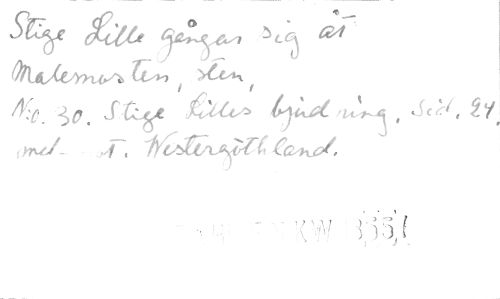 Stige Lille gångar sig åt
Malemosten, sten,
N:o. 30. Stige Lilles bjudning. Sid. 24.
med not. Westergöthland.